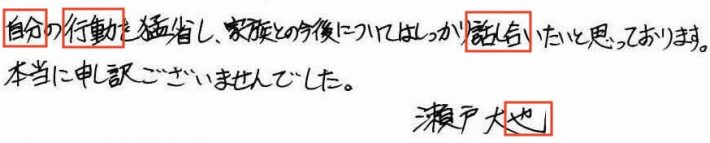 自分の行動を猛省し、家族との今後についてはしっかり話し合いたいと思っております。
本当に申し訳ございませんでした。
瀬戸大也